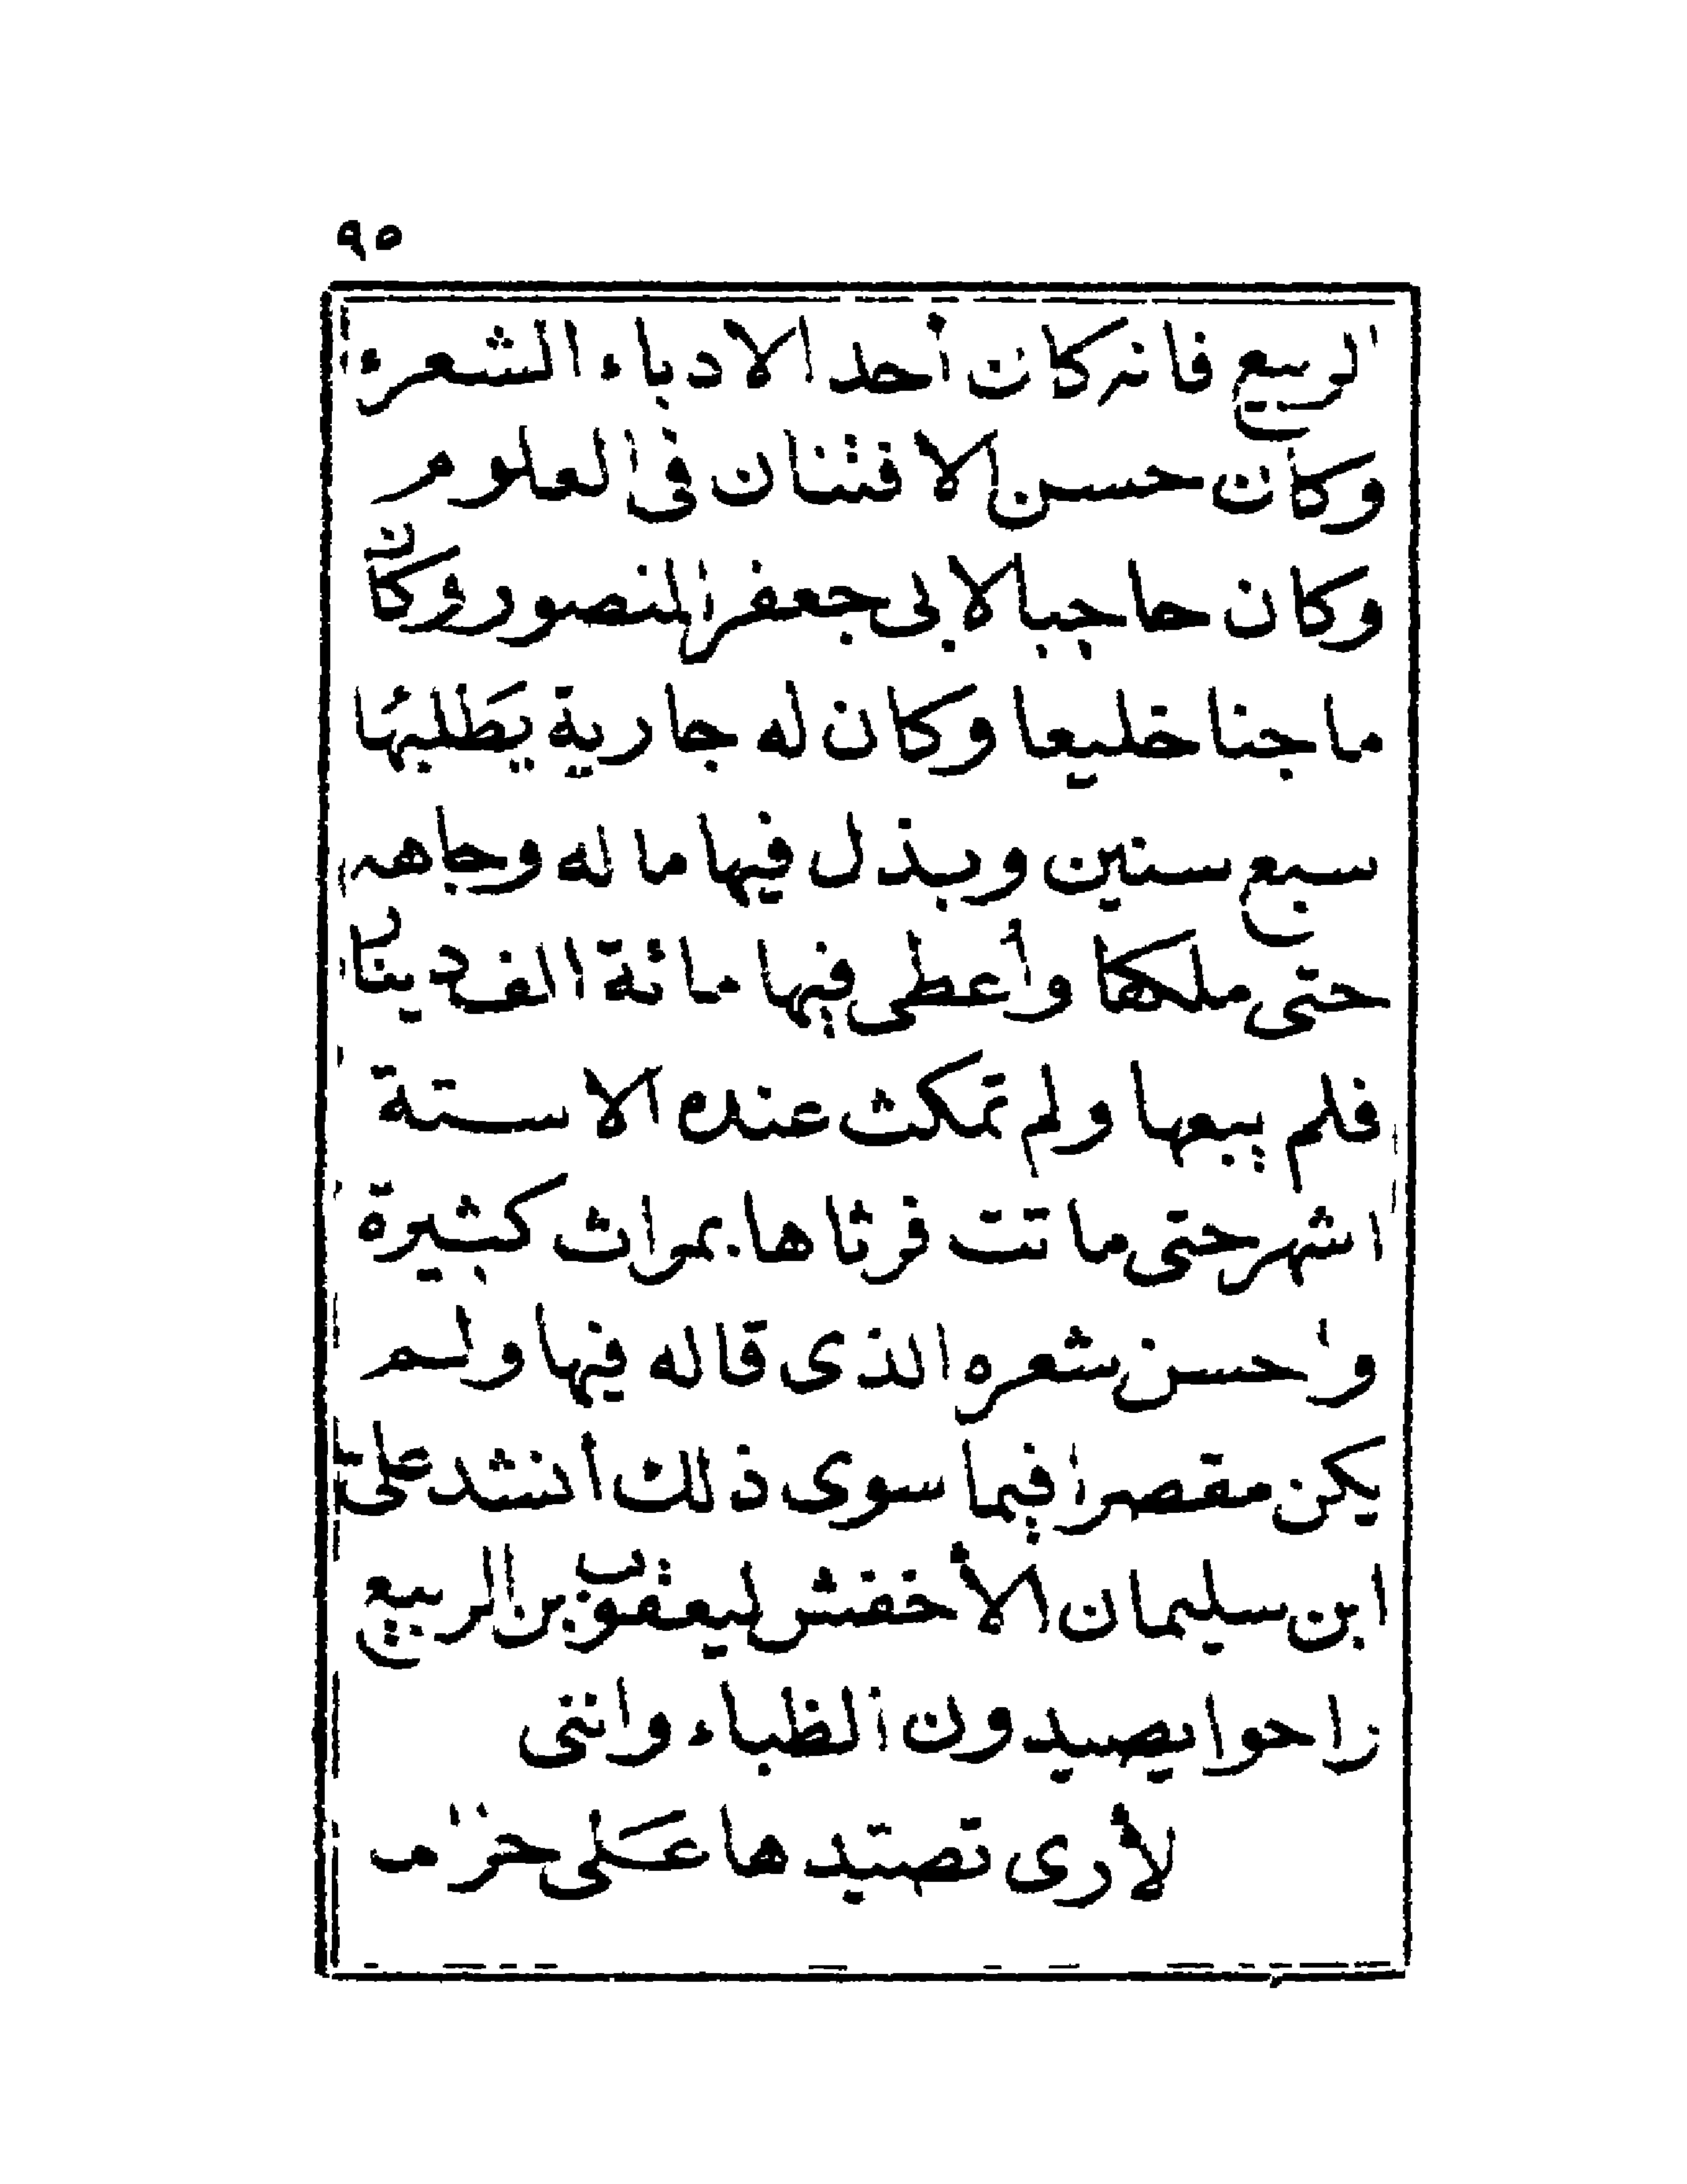 ٩٥
الربيع فانه كان أحد الادباء الشعراء
وكان حسن الافتنان فى العلوم
وكان حاجبا لابى جعفر المنصور وكان
ماجنا خليعا وكان له جارية يَطَلبهَا
سبع سنين وبذل فيها ماله وجاهه
حتى ملكها وأعطى فيها مائة الف دينار
فلم يبعها ولم تمكث عنده الا ستة
اشهر حتى ماتت فرثاها بمراث كثيرة
واحسن شعره الذى قاله فيها ولم
يكن مقصرا فيما سوى ذلك أنشد على
ابن سليمان الأخفش ليعقوب بن الربيع
راحوا يصيدون الظباء وانني
لأرى تصيدها عَلى حراما